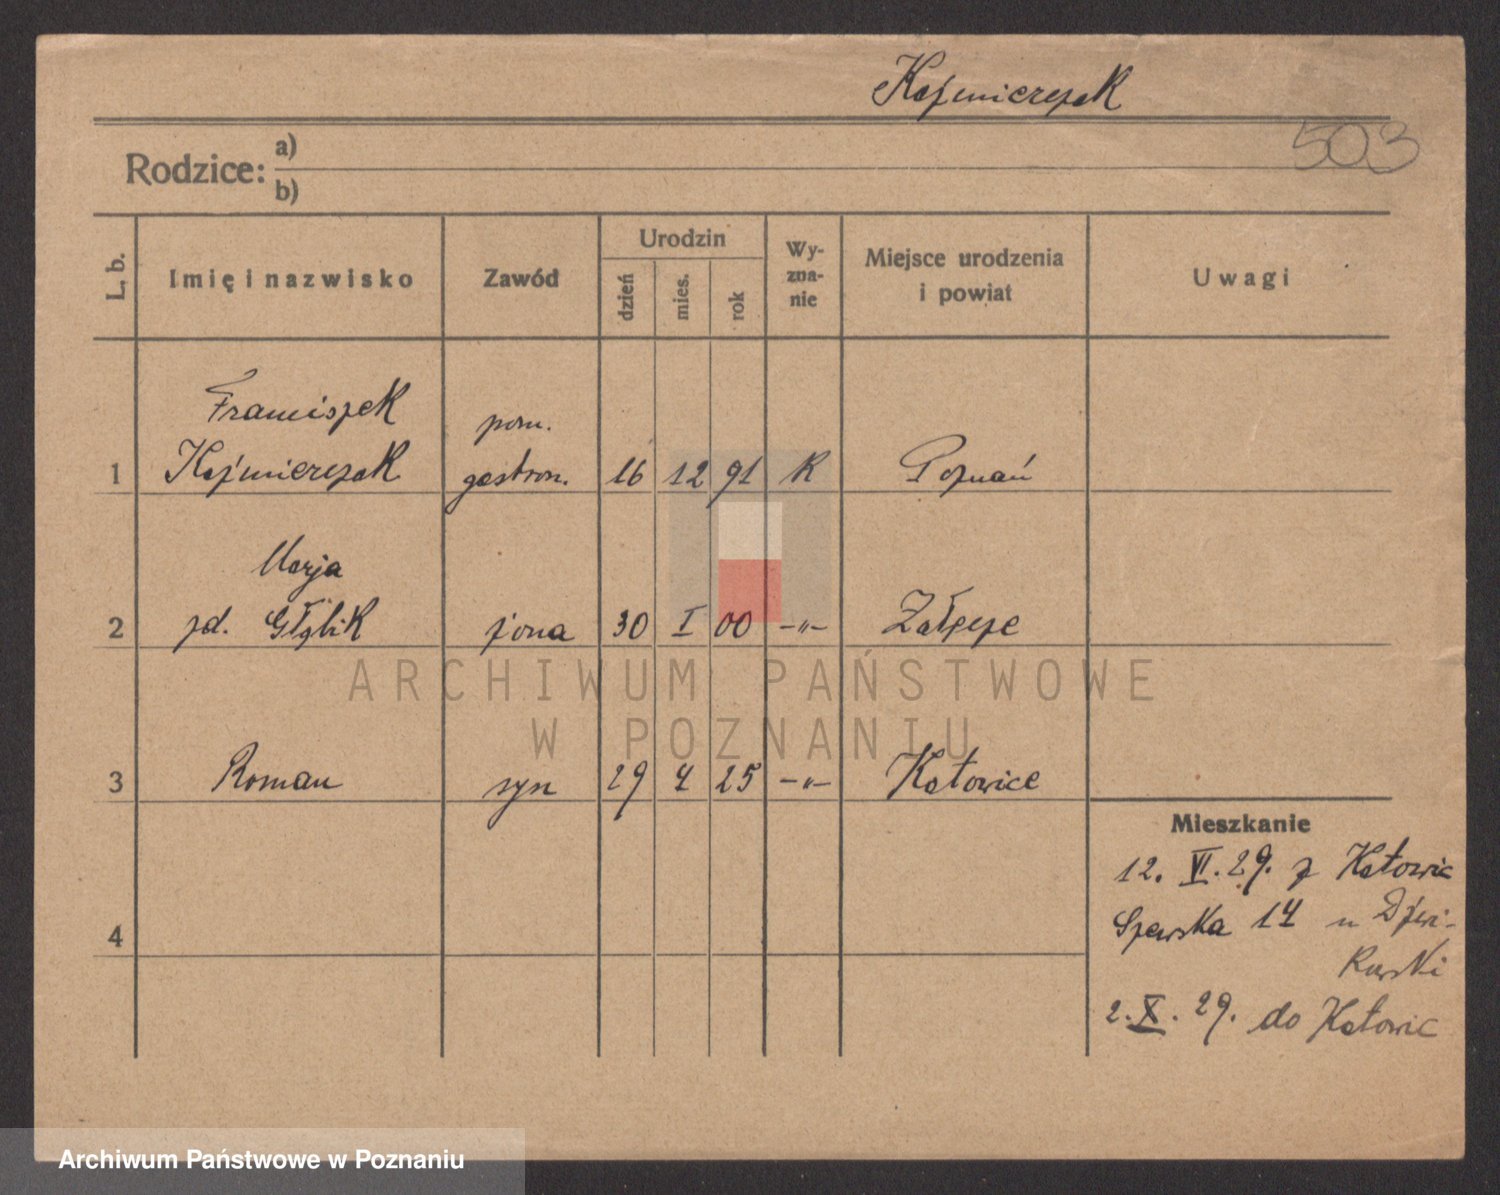 Kaźmierczak
503
Rodzice: a)
b)
L. b.
Imię i nazwisko
Zawód
Urodzin
dzień
mies.
rok
Wy-
zna-
nie
Miejsce urodzenia
i powiat
Uwagi
Franciszek
pom.
1 Kaźmierczak gastron. 16 12 91 R Poznań
Marja
2 zd. Głąbik żona 30 I 00 -"- Załęże
3 Roman syn 29 4 25 -"- Katowice
4
Mieszkanie
12. VI. 29. z Katowic
Szewska 14 u
2. X. 29. do Katowic
ARCHIWUM PAŃSTWOWE
W POZNANIU
Archiwum Państwowe w Poznaniu